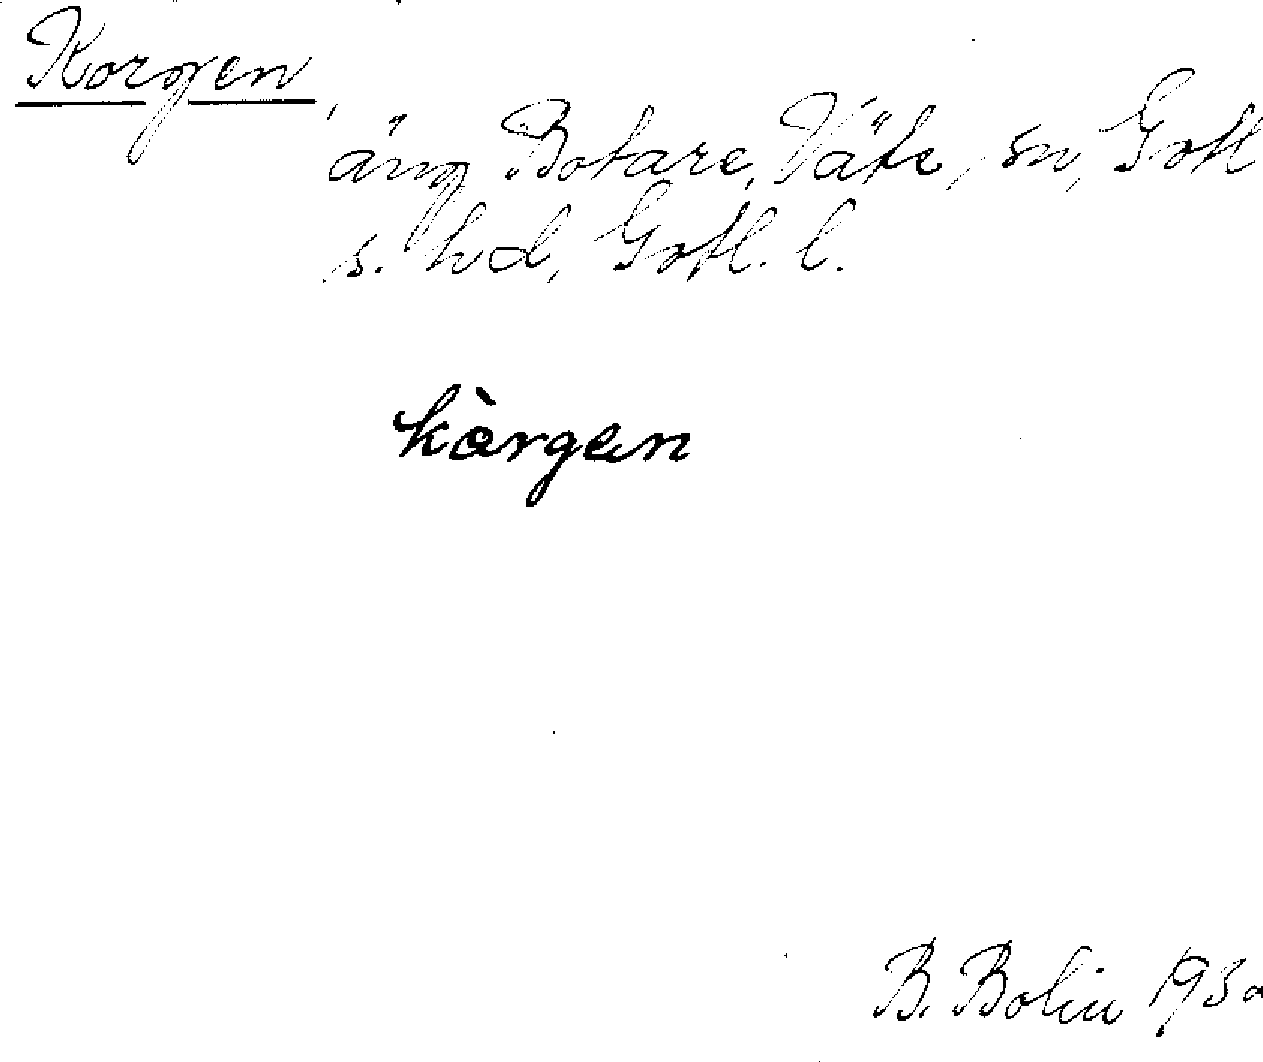 Korgen,
äng Botare, Väte, sn, Gotl
s. hd, Gotl. l.
kòrgen
B. Bolin 1930